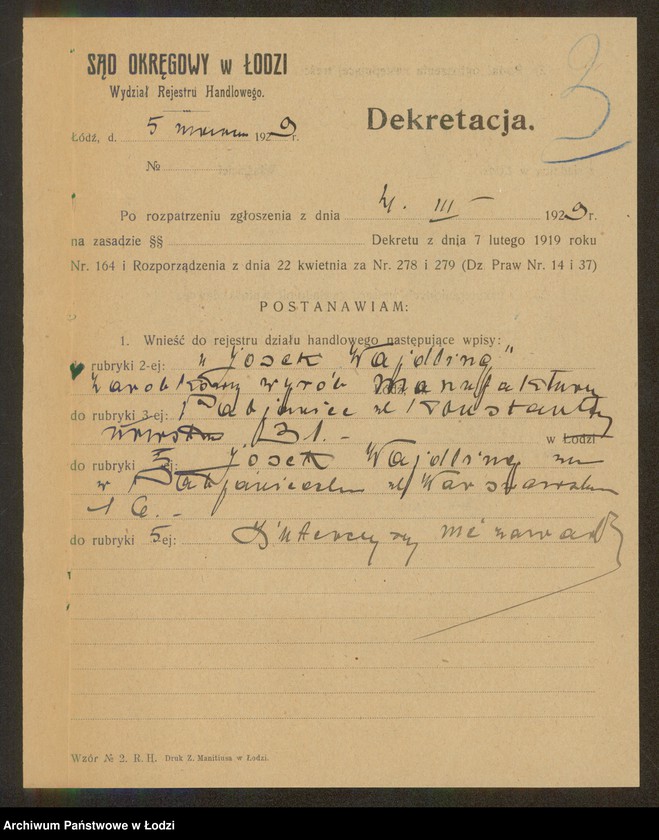 3
SĄD OKRĘGOWY w ŁODZI
Wydział Rejestru Handlowego.
Łódź, d. 5 marca 1929 r.
Dekretacja.
№
Po rozpatrzeniu zgłoszenia z dnia 4. III – 1929 r.
na zasadzie §§ Dekretu z dnia 7 lutego 1919 roku
Nr. 164 i Rozporządzenia z dnia 22 kwietnia za Nr. 278 i 279 (Dz Praw Nr. 14 i 37)
POSTANAWIAM:
1. Wnieść do rejestru działu handlowego następujące wpisy:
do rubryki 2-ej: "Josek Wajdling"
Zarobkowy wyrób Manufaktury
do rubryki 3-ej: Pabjanice ul Konstantynowska 31. –
w Łodzi
do rubryki ej: Josek Wajdling, zam
w Pabjanicach ul Warszawska
16. –
do rubryki 5-ej: Intercyzy nie zawarł
Wzór № 2. R. H. Druk Z. Manitiusa w Łodzi.
Archiwum Państwowe w Łodzi